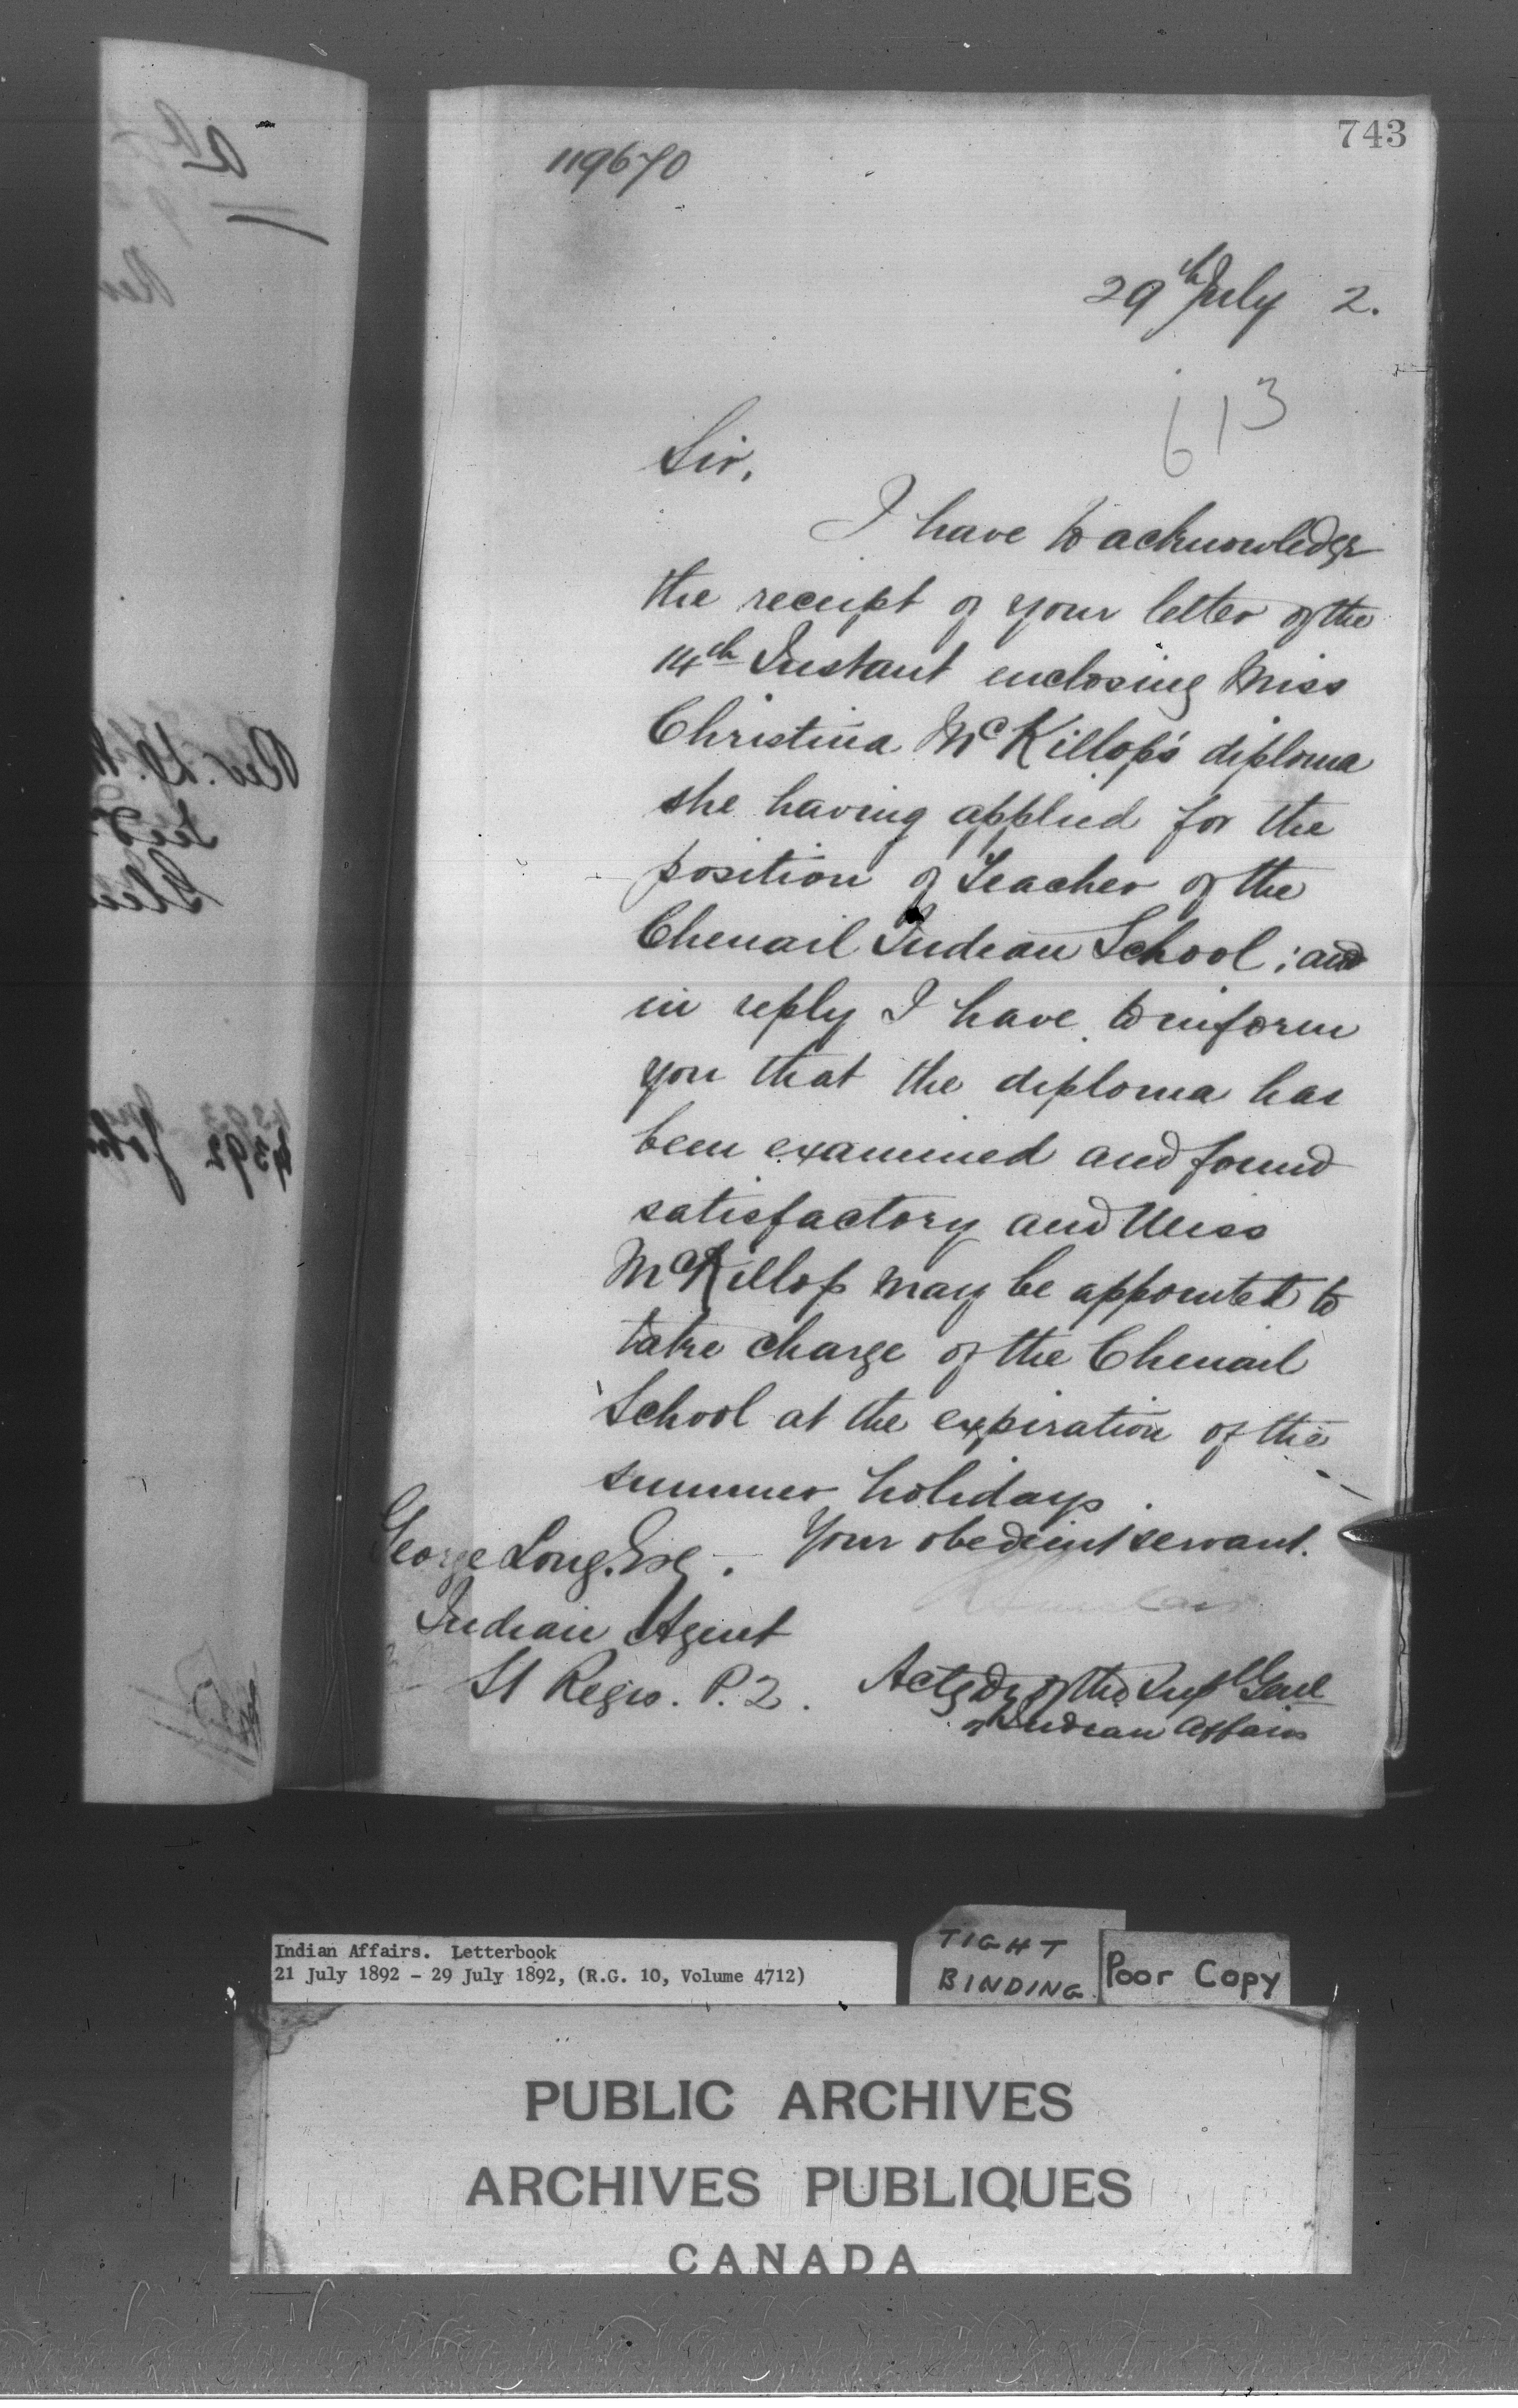 743
119670
29th July 2.
613
Sir,
I have to acknowledge
the receipt of your letter of the
14th Instant enclosing Miss
Christina McKillop's diploma
she having applied for the
position of Teacher of the
Chenail Indian School; and
in reply I have to inform
you that the diploma has
been examined and found
satisfactory and Miss
McKillop may be appointed to
take charge of the Chenail
School at the expiration of the
summer holidays.
Your obedient servant.
George Long, Esq.
Indian Agent
St Regis. P.Q.
Actg Dy of the Supt Genl
of Indian Affairs
Rev.
4392 John
Indian Affairs. Letterbook
21 July 1892 - 29 July 1892, (R.G. 10, Volume 4712)
TIGHT
BINDING
Poor Copy
PUBLIC ARCHIVES
ARCHIVES PUBLIQUES
CANADA